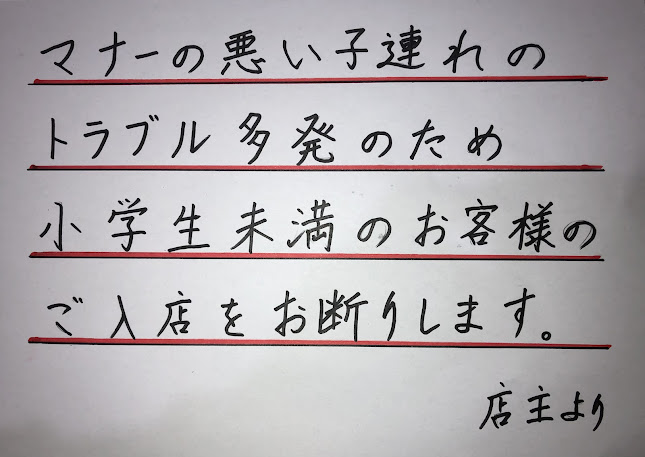 マナーの悪い子連れの
トラブル多発のため
小学生未満のお客様の
ご入店をお断りします。
店主より